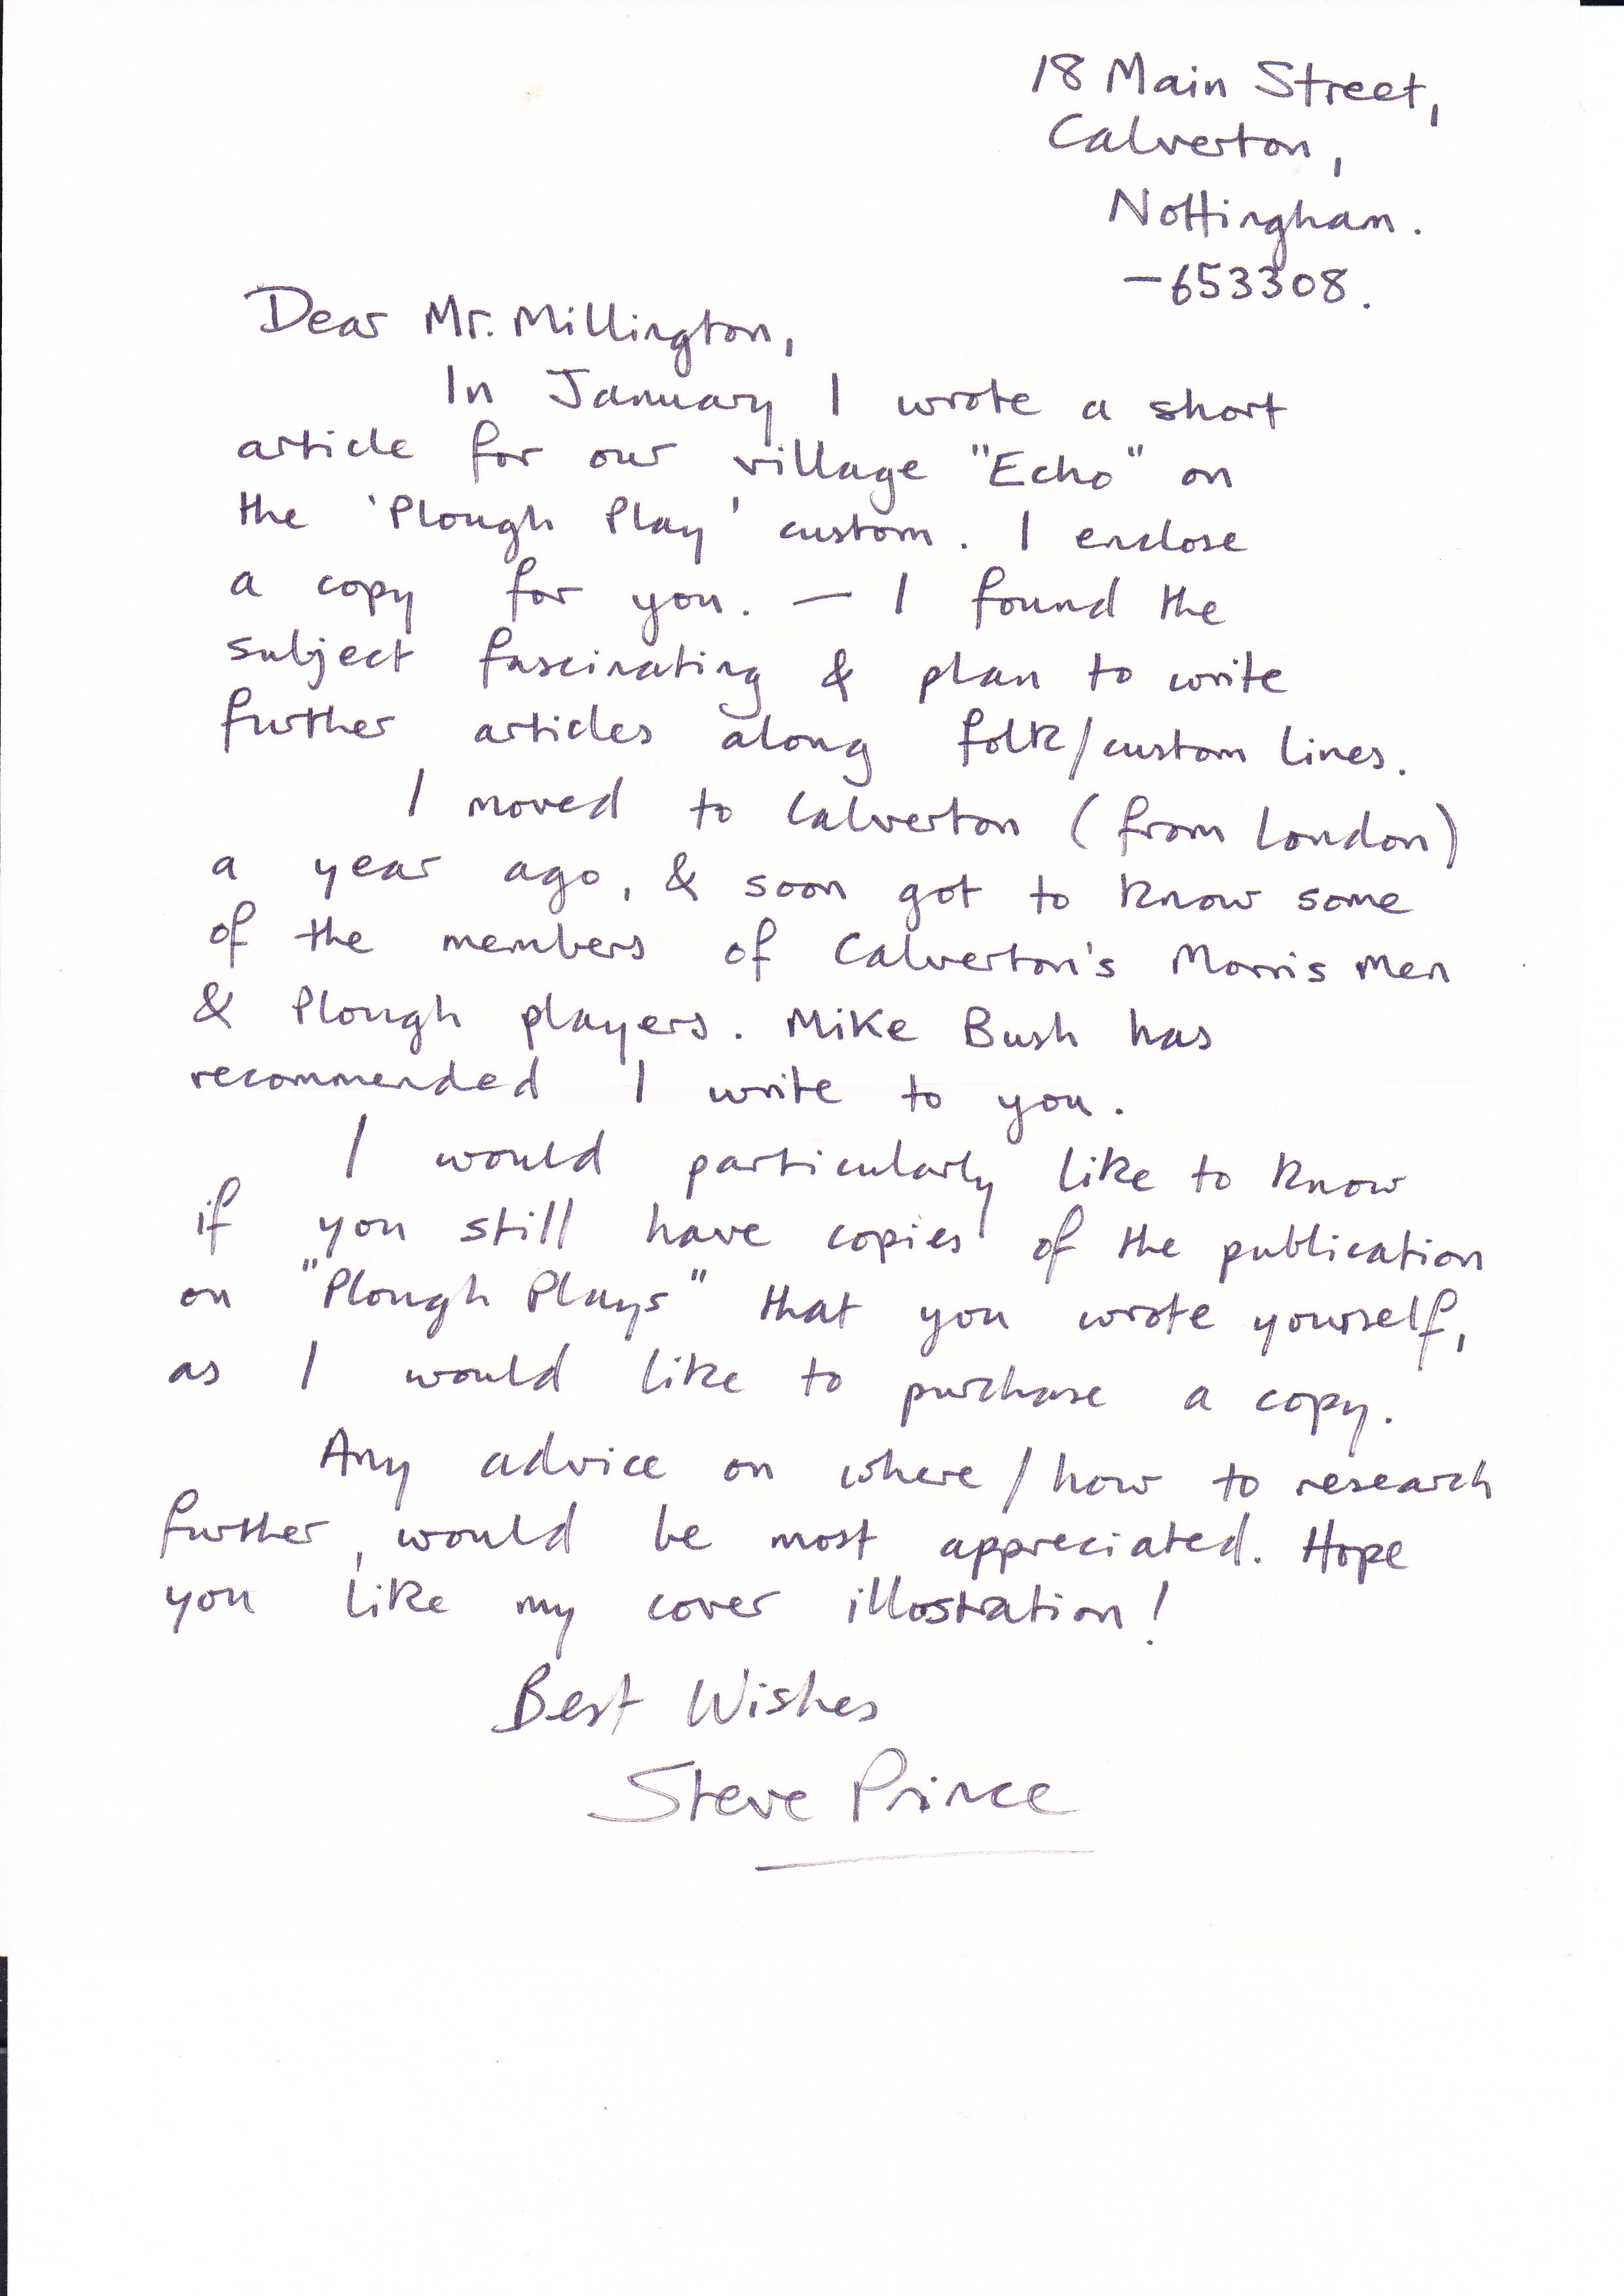 18 Main Street,
Calverton,
Nottingham.
-653308.
Dear Mr. Millington,
In January I wrote a short
article for our village "Echo" on
the 'Plough Play' custom. I enclose
a copy for you. — I found the
subject fascinating & plan to write
further articles along folk/custom lines.
I moved to Calverton (from London)
a year ago, & soon got to know some
of the members of Calverton's Morris Men
& Plough players. Mike Bush has
recommended I write to you.
I would particularly like to know
if you still have copies of the publication
on "Plough Plays" that you wrote yourself,
as I would like to purchase a copy.
Any advice on where/how to research
further, would be most appreciated. Hope
you like my cover illostration!
Best Wishes
Steve Prince